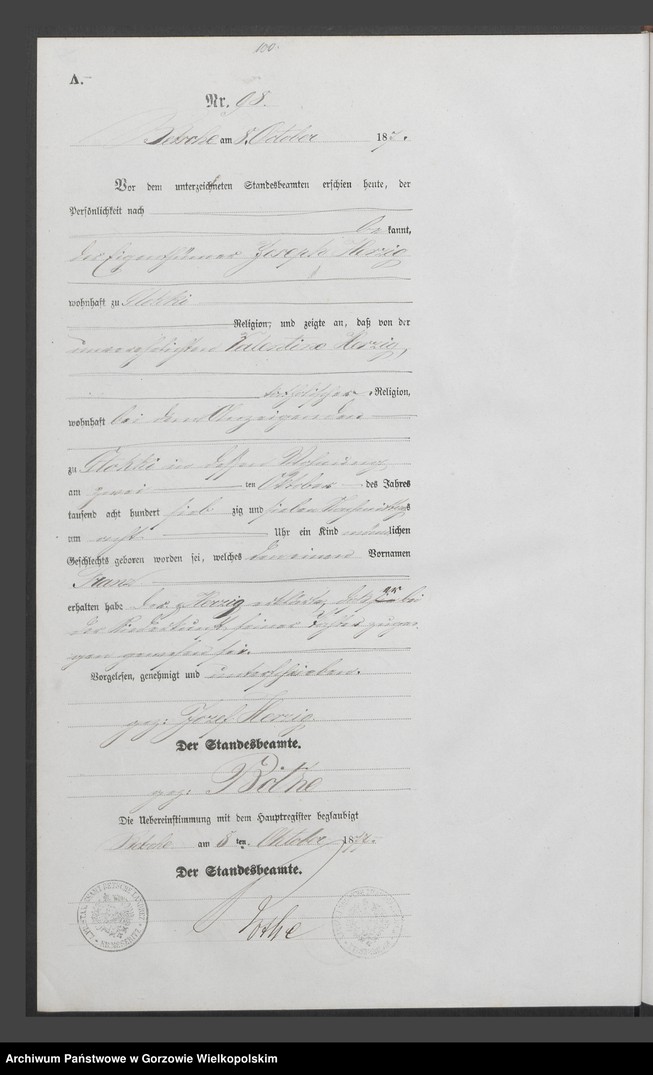 100.
A.
Nr. 98.
Betsche am 8. October 187
Vor dem unterzeichneten Standesbeamten erschien heute, der
Persönlichkeit nach
be kannt,
der Eigenthümer Joseph Herzig
wohnhaft zu
Religion, und zeigte an, daß von der
unverehelichten Valentina Herzig,
katholischer Religion,
wohnhaft bei dem Anzeigenden
zu in dessen Wohnung
am zwei ten Oktober des Jahres
tausend acht hundert sieb zig und sieben
um Uhr ein Kind männlichen
Geschlechts geboren worden sei, welches den einen Vornamen
Franz
erhalten habe. Der Herzig erklärte, daß er bei
der Niederkunft seiner Tochter zuge-
gen gewesen sei.
Vorgelesen, genehmigt und unterschrieben.
gez: Jozef Herzig
Der Standesbeamte.
gez: Böthe
Die Uebereinstimmung mit dem Hauptregister beglaubigt
Betsche am 8 ten Oktober 187
Der Standesbeamte.
Böthe
Archiwum Państwowe w Gorzowie Wielkopolskim